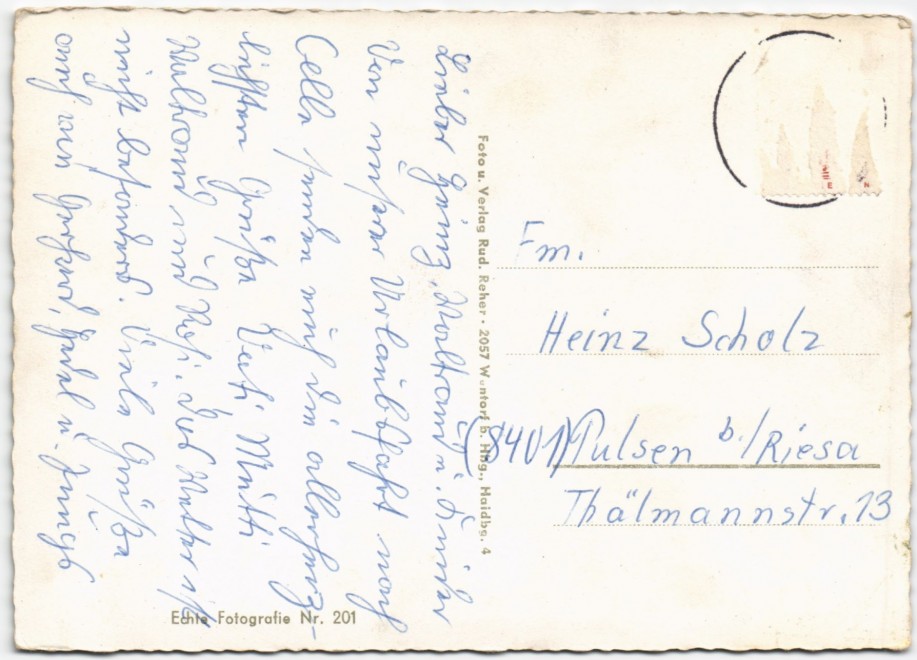 Lieber Heinz, u. Kinder
Von unserer Urlaubsfahrt nach
Celle senden euch die allerherz-
lichsten Grüße Vati Mutti
und Das Wetter ist
nicht besonders. Viele Grüße
auch an Gerhard, u. Jungs
Foto u. Verlag Rud. Reher · 2057 Wentorf b. Hbg., Haidbg. 4
Echte Fotografie Nr. 201
Fm.
Heinz Scholz
(8401) Pulsen b./Riesa
Thälmannstr. 13